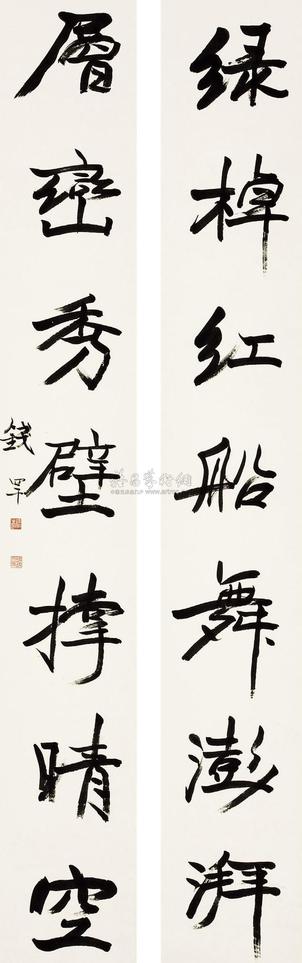 绿棹红船舞澎湃
層巒秀壁撑晴空
錢罕